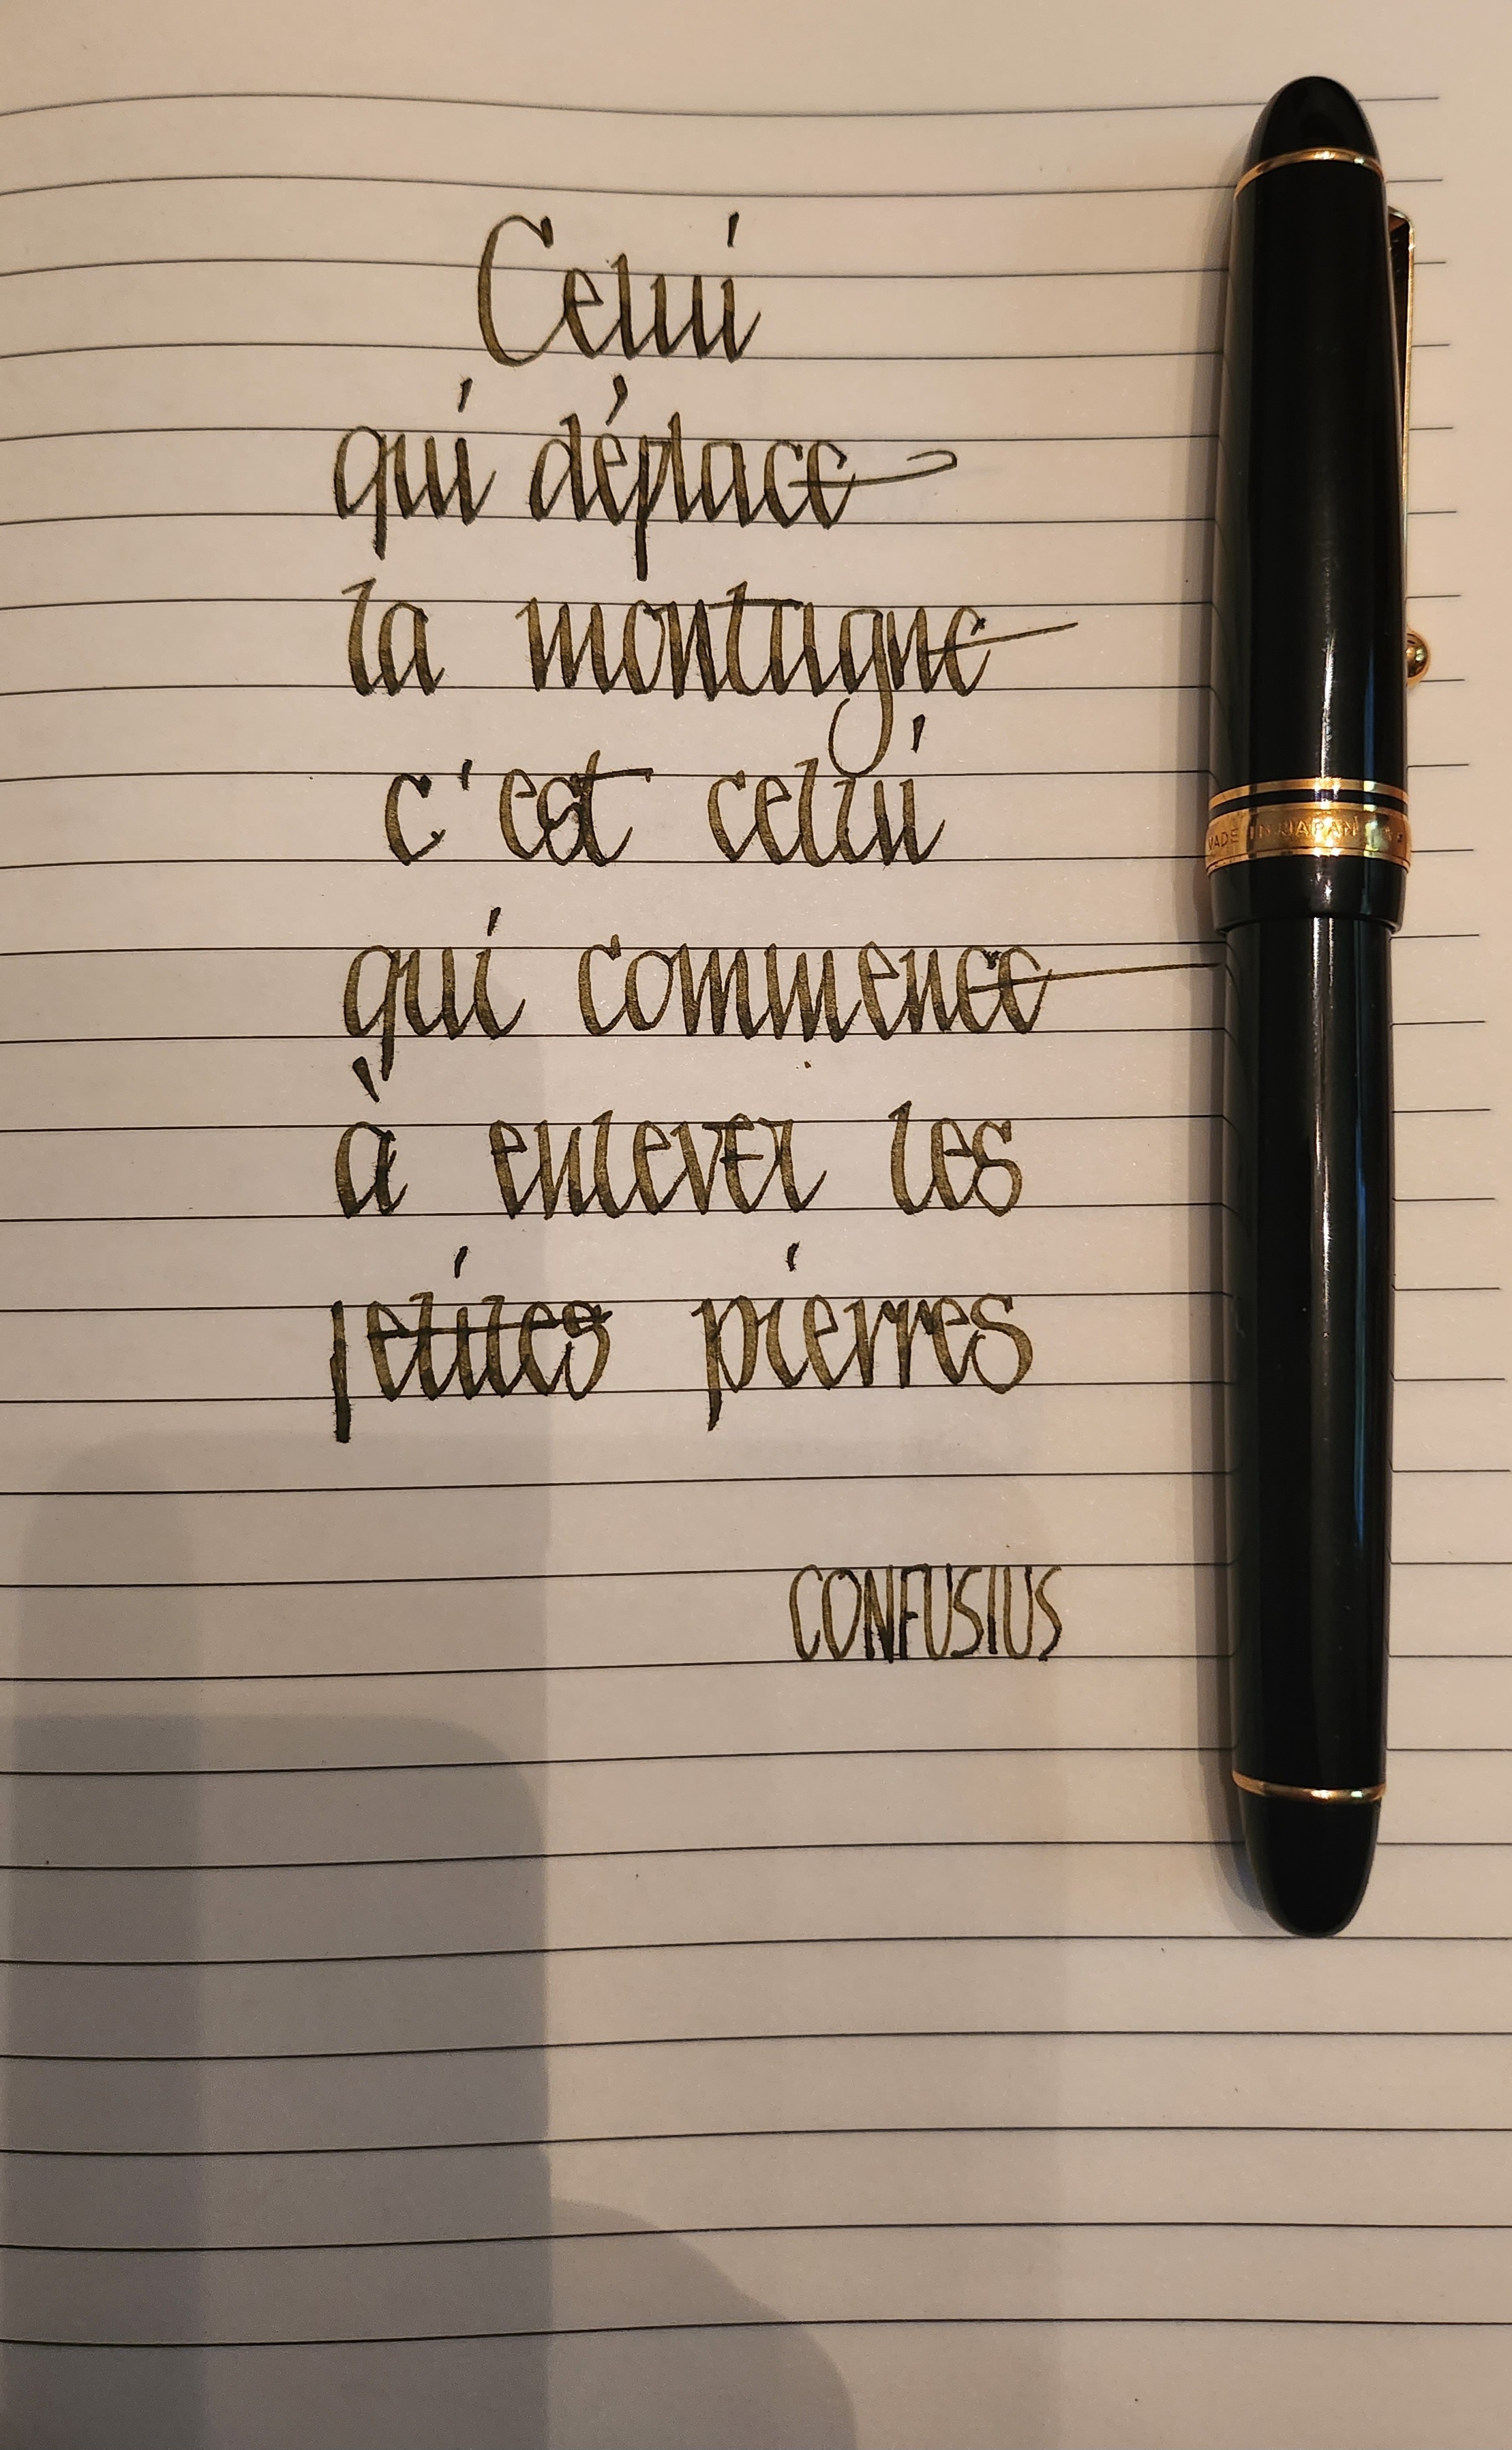 Celui
qui déplace
la montagne
c'est celui
qui commence
à enlever les
petites pierres
CONFUSIUS
MADE IN JAPAN